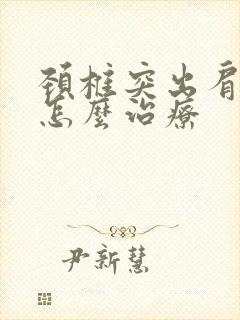 頚椎突出肩
怎麼治療
尹新慧